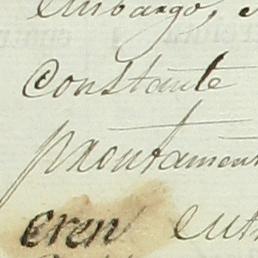 embargo,
constante
prontamen
eren entr